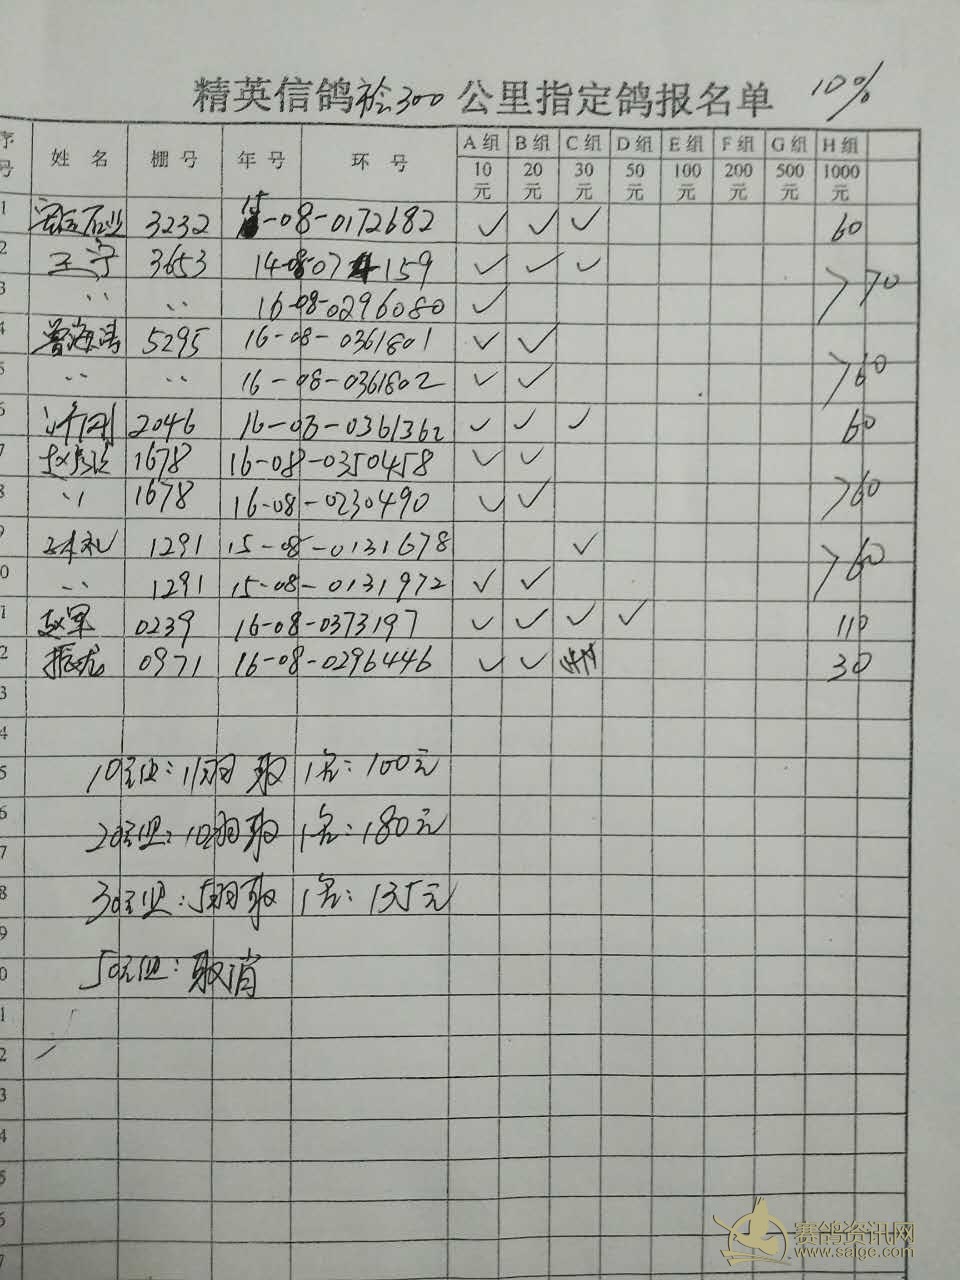 精英信鸽 300 公里指定鸽报名单 10%
序号 姓名 棚号 年号 环号 A组 B组 C组 D组 E组 F组 G组 H组
10元 20元 30元 50元 100元 200元 500元 1000元
1 3232 15-08-0172682 ✓ ✓ ✓ 60
2 王宁 3653 14-08-07 159 ✓ ✓ ✓ >70
3 〃 〃 16-08-0296080 ✓
4 曾海涛 5295 16-08-0361801 ✓ ✓ >60
5 〃 〃 16-08-0361802 ✓ ✓
6 2046 16-08-0361362 ✓ ✓ ✓ 60
7 1678 16-08-0350458 ✓ ✓
8 〃 1678 16-08-0230490 ✓ ✓ >60
9 1291 15-08-0131678 ✓ >60
0 〃 1291 15-08-0131972 ✓ ✓
1 赵军 0239 16-08-0373197 ✓ ✓ ✓ ✓ 110
2 振龙 0971 16-08-0296446 ✓ ✓ 30
3
4
5 10元组: 11羽取1名: 100元
6 20元组: 10羽取1名: 180元
7
8 30元组: 5羽取1名: 135元
9
0 50元组: 取消
1
2
3
4
5
6
7
赛鸽资讯网
www.saige.com